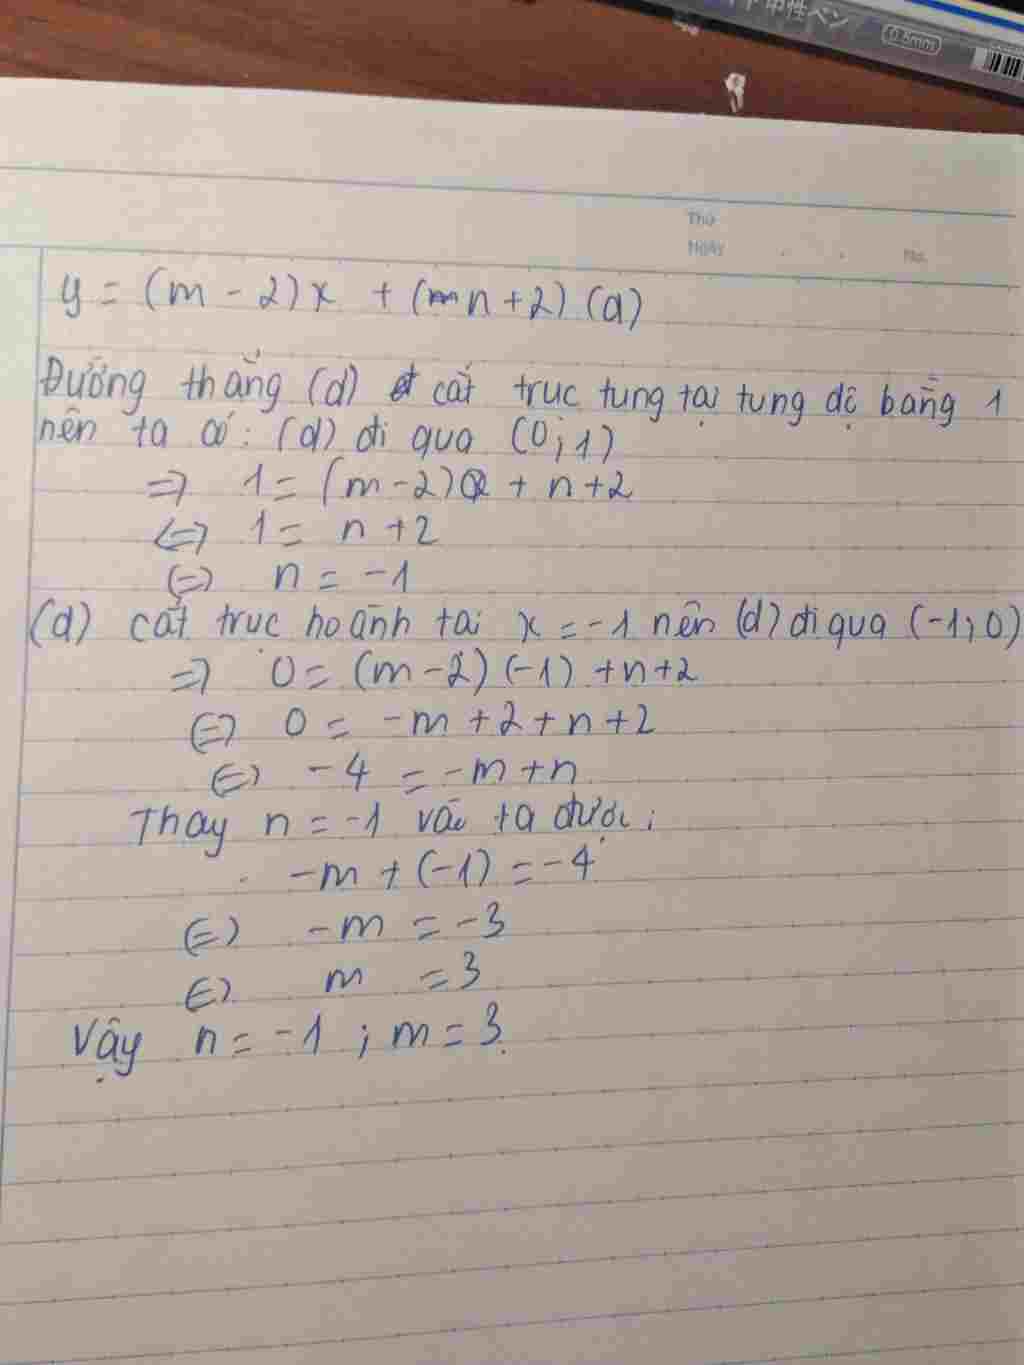 中性ペン
0.5mm
Thứ
Ngày
No.
y = (m - 2)x + (n + 2) (d)
Đường thẳng (d) cắt trục tung tại tung độ bằng 1
nên ta có: (d) đi qua (0; 1)
=> 1 = (m - 2)0 + n + 2
<=> 1 = n + 2
<=> n = -1
(d) cắt trục hoành tại x = -1 nên (d) đi qua (-1; 0)
=> 0 = (m - 2) (-1) + n + 2
<=> 0 = -m + 2 + n + 2
<=> -4 = -m + n
Thay n = -1 vào ta được:
-m + (-1) = -4
<=> -m = -3
<=> m = 3
Vậy n = -1 ; m = 3.